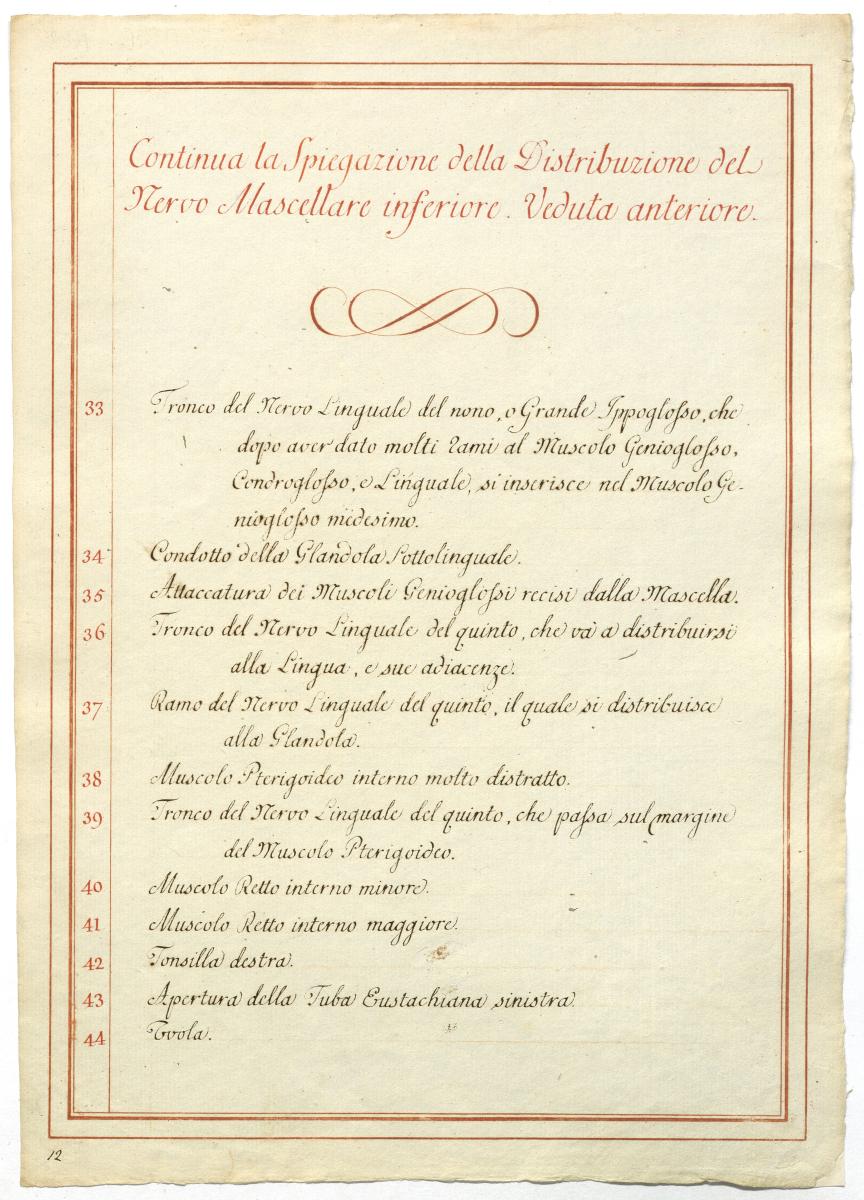 Continua la Spiegazione della Distribuzione del
Nervo Mascellare inferiore. Veduta anteriore.
33 Tronco del Nervo Linguale del nono, o Grande Ippoglosso, che
dopo aver dato molti Rami al Muscolo Genioglosso,
Condroglosso, e Linguale, si inserisce nel Muscolo Ge-
nioglosso medesimo.
34 Condotto della Glandola Sottolinguale.
35 Attaccatura dei Muscoli Genioglossi recisi dalla Mascella.
36 Tronco del Nervo Linguale del quinto, che và a distribuirsi
alla Lingua, e sue adiacenze.
37 Ramo del Nervo Linguale del quinto, il quale si distribuisce
alla Glandola.
38 Muscolo Pterigoideo interno molto distratto.
39 Tronco del Nervo Linguale del quinto, che passa sul margine
del Muscolo Pterigoideo.
40 Muscolo Retto interno minore.
41 Muscolo Retto interno maggiore.
42 Tonsilla destra.
43 Apertura della Tuba Eustachiana sinistra.
44 Uvola.
12